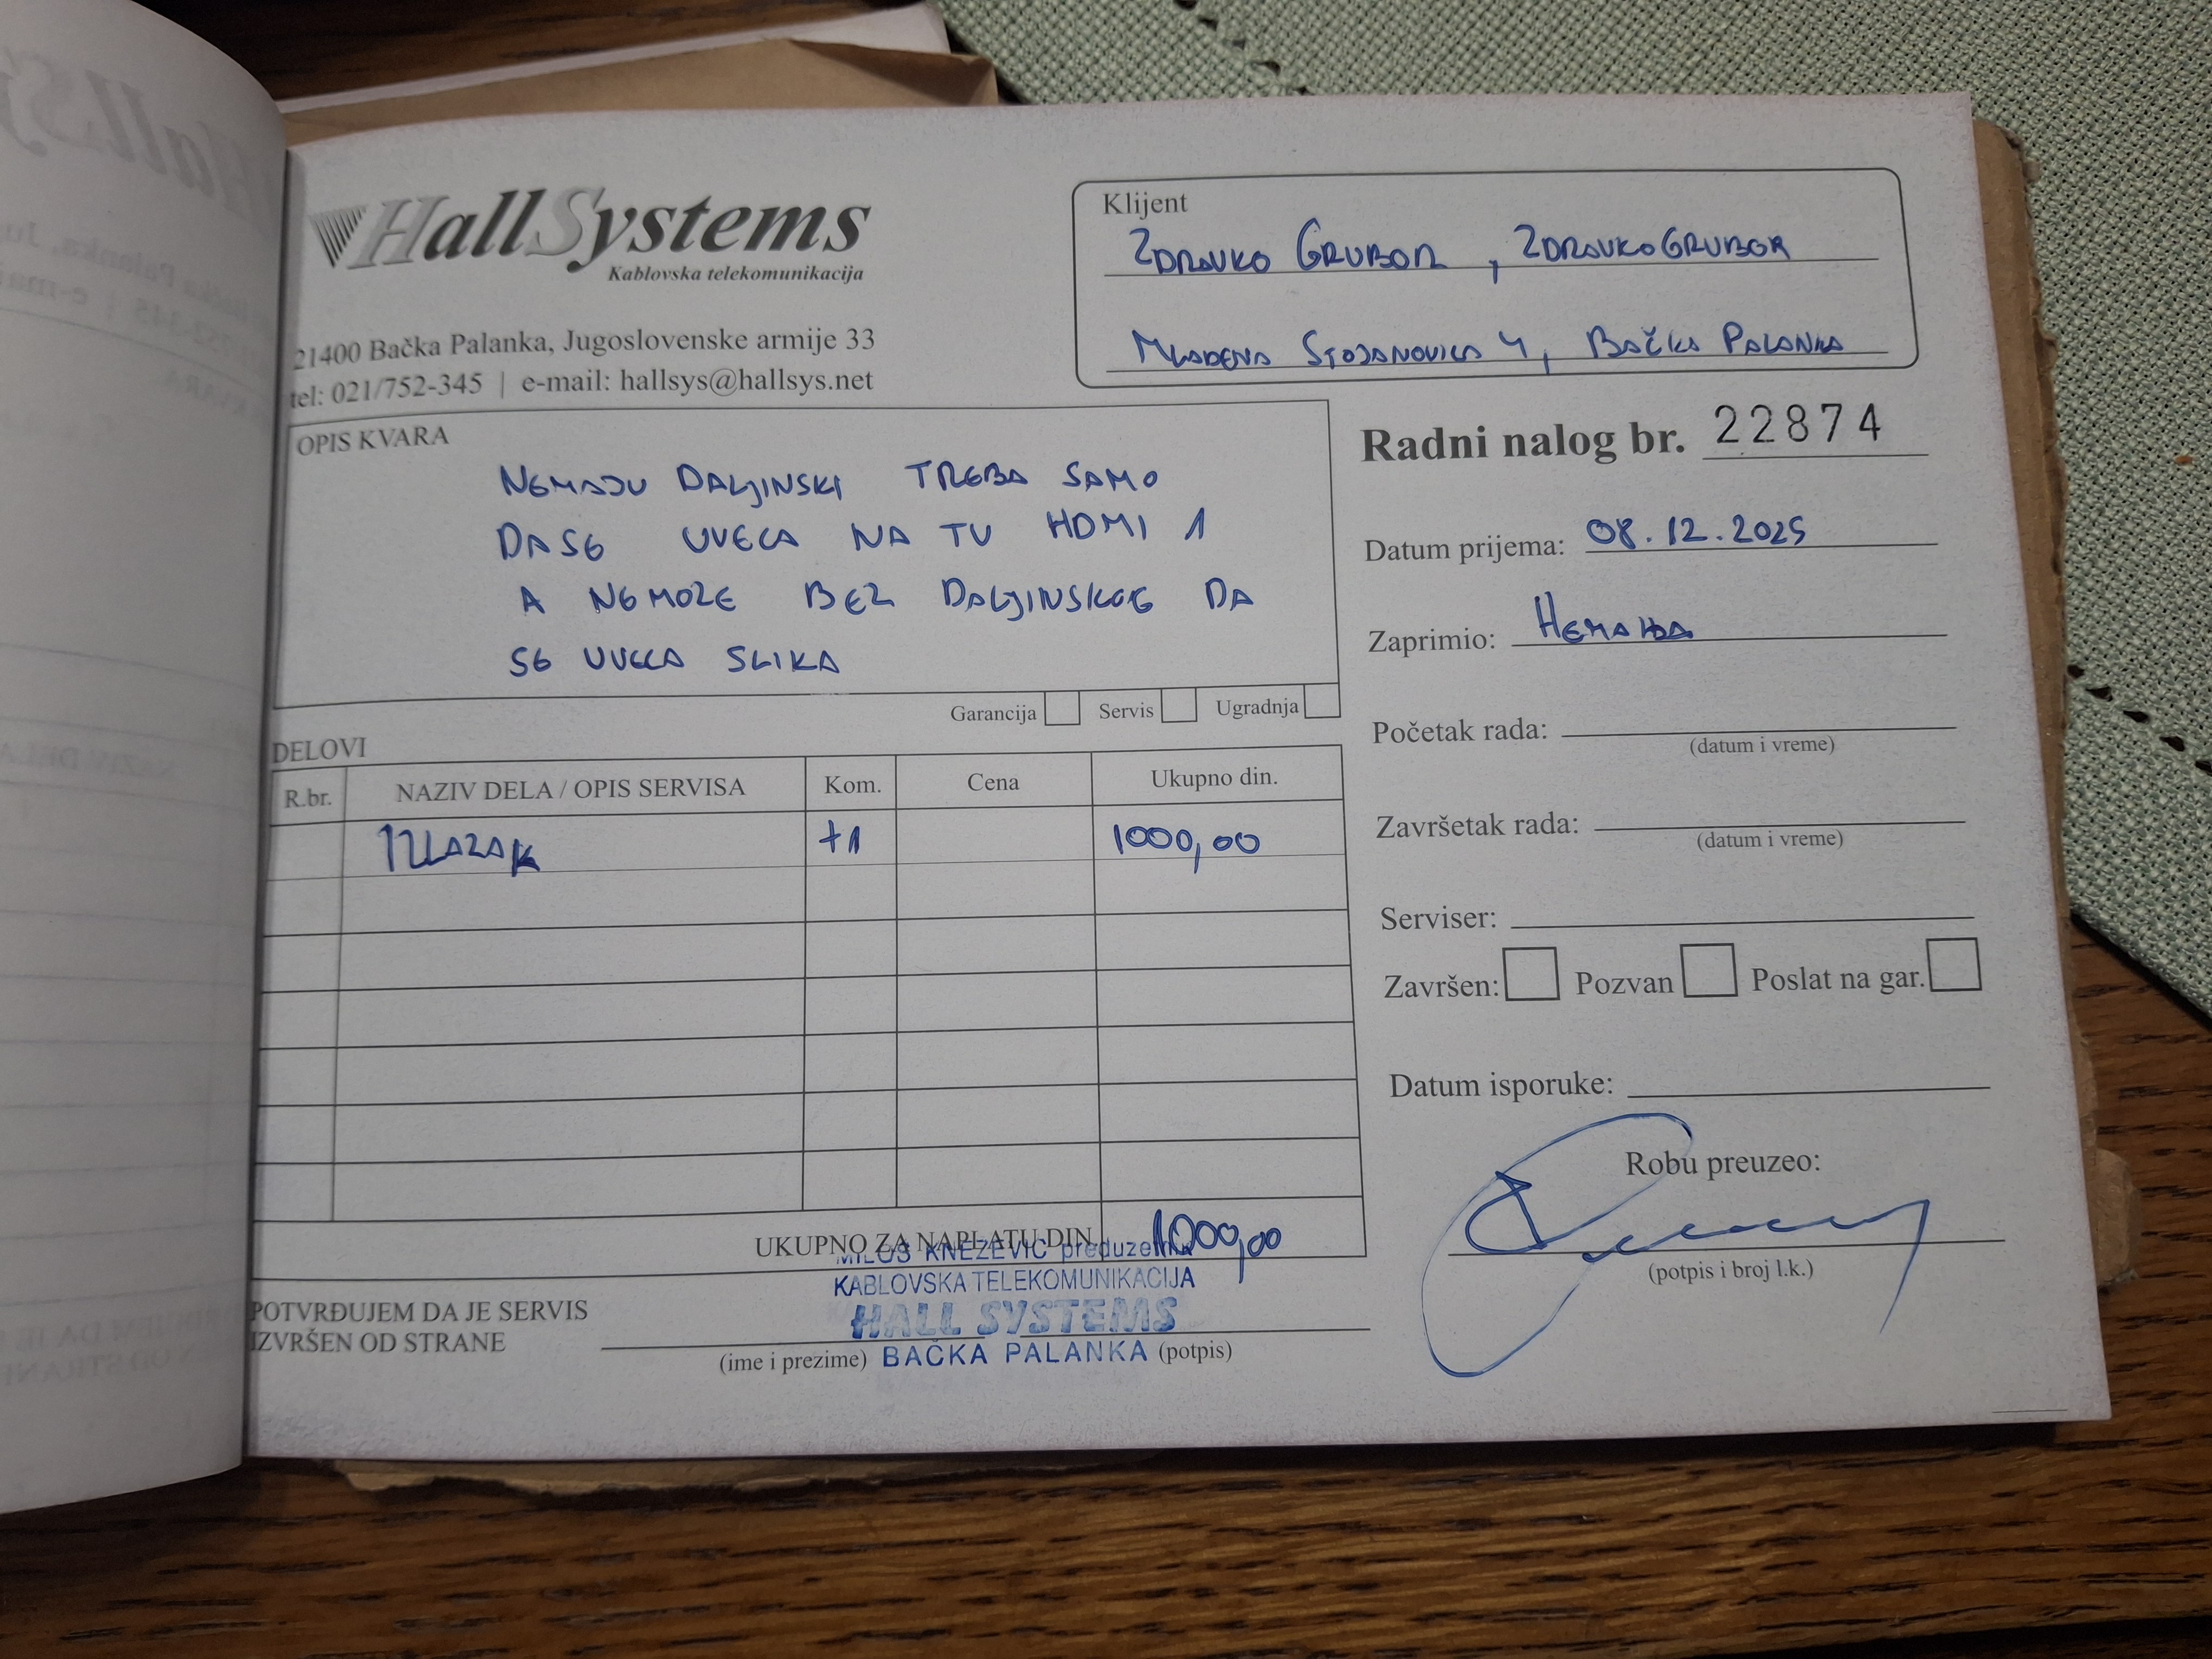 HallSystems
Kablovska telekomunikacija
21400 Bačka Palanka, Jugoslovenske armije 33
tel: 021/752-345 | e-mail: hallsys@hallsys.net
Klijent
ZDRAVKO GRUBOR, ZDRAVKOGRUBOR
MLADENA STOJANOVICA 4, BAČKA PALANKA
OPIS KVARA
NEMAJU DALJINSKI TREBA SAMO
DA SE UVECA NA TV HDMI 1
A NEMOZE BEZ DALJINSKOG DA
SE UVECA SLIKA
Garancija Servis Ugradnja
Radni nalog br. 22874
Datum prijema: 08.12.2025
Zaprimio: Немања
Početak rada:
(datum i vreme)
Završetak rada:
(datum i vreme)
Serviser:
Završen: Pozvan Poslat na gar.
Datum isporuke:
Robu preuzeo:
(potpis i broj l.k.)
DELOVI
R.br. NAZIV DELA / OPIS SERVISA Kom. Cena Ukupno din.
IZLAZAK +1 1000,00
UKUPNO ZA NAPLATU DIN. 1000,00
MILOŠ KNEŽEVIĆ preduzetnik
KABLOVSKA TELEKOMUNIKACIJA
HALL SYSTEMS
BAČKA PALANKA
POTVRĐUJEM DA JE SERVIS
IZVRŠEN OD STRANE
(ime i prezime) (potpis)